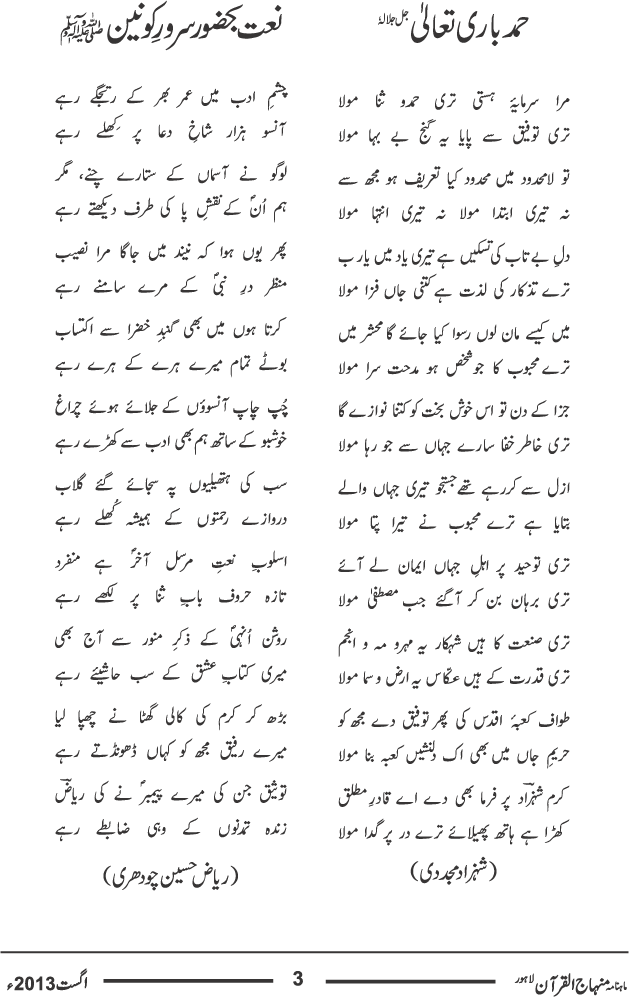 حمد باری تعالیٰ جل جلالہٗ
مرا سرمایۂ ہستی تری حمدو ثنا مولا
تری توفیق سے پایا یہ گنجِ بے بہا مولا
تو لامحدود میں محدود کیا تعریف ہو مجھ سے
نہ تیری ابتدا مولا نہ تیری انتہا مولا
دلِ بے تاب کی تسکیں ہے تیری یاد میں یارب
ترے تذکار کی لذت ہے کتنی جاں فزا مولا
میں کیسے مان لوں رسوا کیا جائے گا محشر میں
ترے محبوب کا جو شخص ہو مدحت سرا مولا
جزا کے دن تو اس خوش بخت کو کتنا نوازے گا
تری خاطر خفا سارے جہاں سے جو رہا مولا
ازل سے کررہے تھے جستجو تیری جہاں والے
بتایا ہے ترے محبوب نے تیرا پتا مولا
تری توحید پر اہلِ جہاں ایمان لے آئے
تری برہان بن کر آگئے جب مصطفیٰؐ مولا
تری صنعت کا ہیں شہکار یہ مہرو مہ و انجم
تری قدرت کے ہیں عکاس یہ ارض و سما مولا
طواف کعبۂ اقدس کی پھر توفیق دے مجھ کو
حریمِ جاں میں بھی اک دلنشیں کعبہ بنا مولا
کرم شہزادؔ پر فرما بھی دے اے قادرِ مطلق
کھڑا ہے ہاتھ پھیلائے ترے در پر گدا مولا
(شہزاد مجددی)
نعت بحضور سرورِ کونین ﷺ
چشمِ ادب میں عمر بھر کے رتجگے رہے
آنسو ہزار شاخِ دعا پر کِھلے رہے
لوگو نے آسماں کے ستارے چنے، مگر
ہم اُنؐ کے نقشِ پا کی طرف دیکھتے رہے
پھر یوں ہوا کہ نیند میں جاگا مرا نصیب
منظر درِ نبیؐ کے مرے سامنے رہے
کرتا ہوں میں بھی گنبدِ خضرا سے اکتساب
بوٹے تمام میرے ہرے کے ہرے رہے
چُپ چاپ آنسوؤں کے جلائے ہوئے چراغ
خوشبو کے ساتھ ہم بھی ادب سے کھڑے رہے
سب کی ہتھیلیوں پہ سجائے گئے گلاب
دروازے رحمتوں کے ہمیشہ کُھلے رہے
اسلوبِ نعتِ مرسل آخرؐ ہے منفرد
تازہ حروف بابِ ثنا پر لکھے رہے
روشن اُنہیؐ کے ذکرِ منور سے آج بھی
میری کتابِ عشق کے سب حاشیئے رہے
بڑھ کر کرم کی کالی گھٹا نے چھپا لیا
میرے رفیق مجھ کو کہاں ڈھونڈتے رہے
توثیق جن کی میرے پیمبرؐ نے کی ریاضؔ
زندہ تمدنوں کے وہی ضابطے رہے
(ریاض حسین چودھری)
ماہنامہ منہاج القرآن لاہور
3
اگست 2013ء